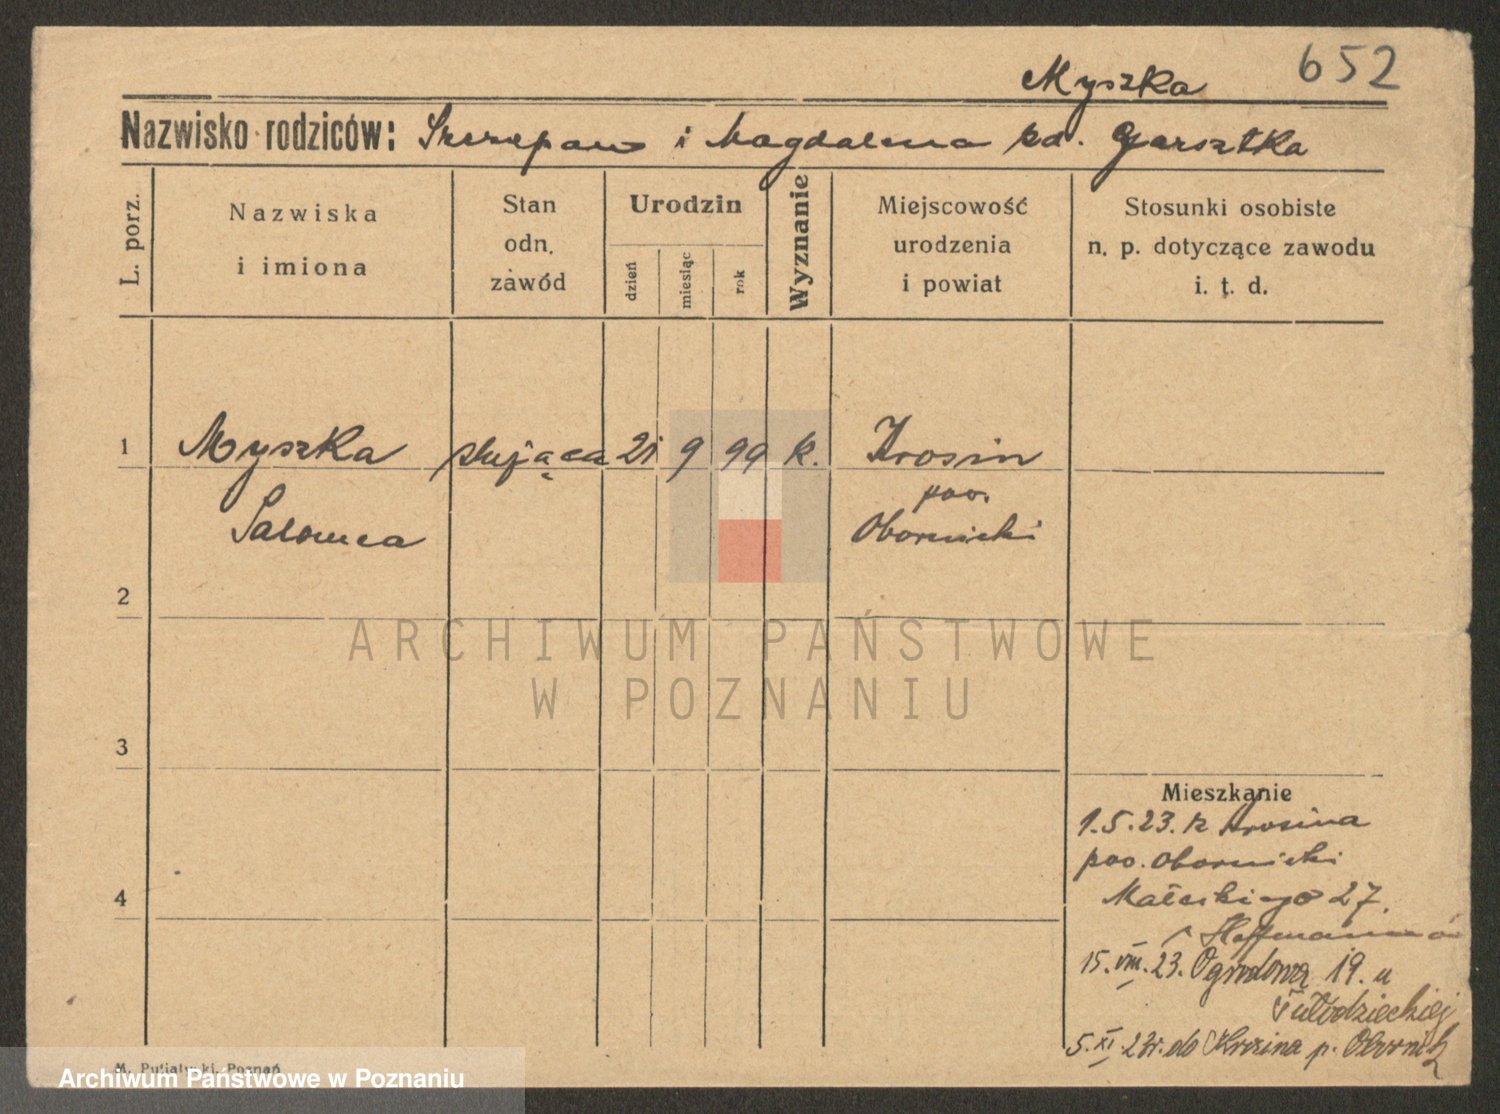 652
Myszka
Nazwisko rodziców: Szczepan i Magdalena zd. Garsztka
L. porz.
Nazwiska
i imiona
Stan
odn.
zawód
Urodzin
dzień
miesiąc
rok
Wyznanie
Miejscowość
urodzenia
i powiat
Stosunki osobiste
n. p. dotyczące zawodu
i. t. d.
1 Myszka służąca 21 9 99 k. Krosin
pow.
Salomea Obornicki
2
ARCHIWUM PAŃSTWOWE
W POZNANIU
3
4
Mieszkanie
1.5.23. z Krosina
pow. Obornicki
Małeckiego 27.
Hoffmannów
15. VIII. 23. Ogrodowa 19. u
Tułodzieckiej
5. XI. 23r. do Krosina p. Obornik
M. Putiatycki, Poznań
Archiwum Państwowe w Poznaniu